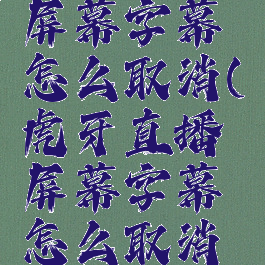 屏幕字幕
怎么取消(
虎牙直播
屏幕字幕
怎么取消